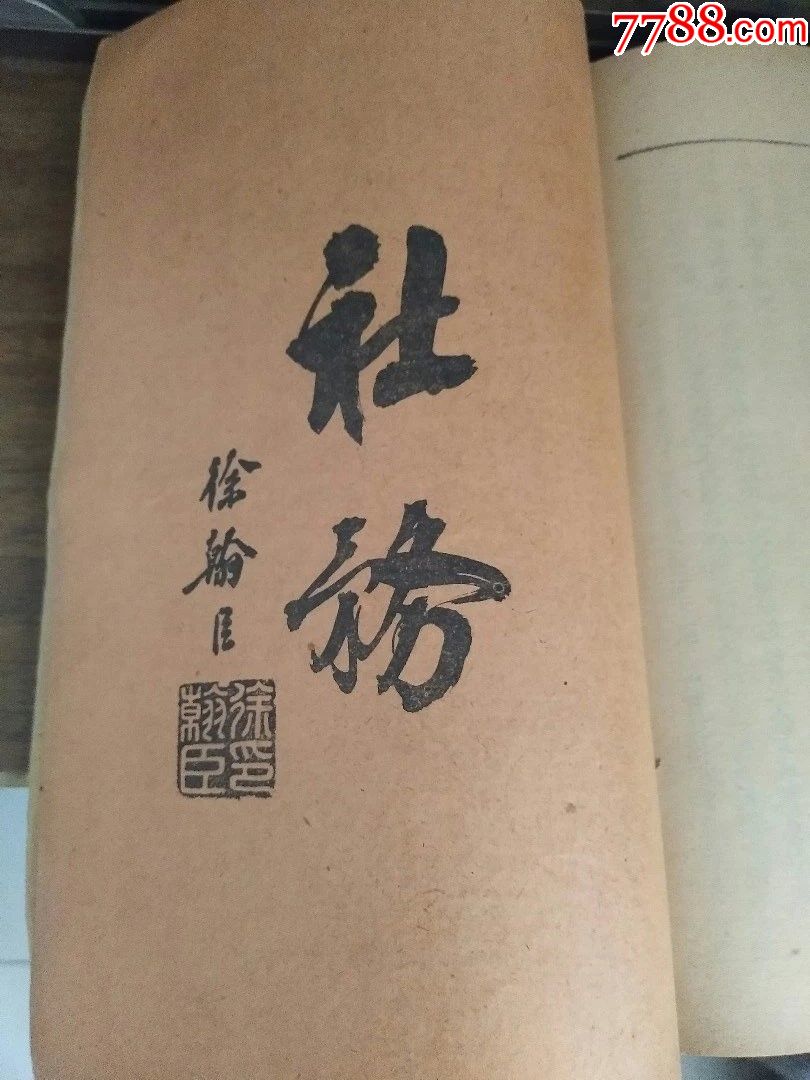 7788.com
社務
徐翰臣
徐印
翰臣